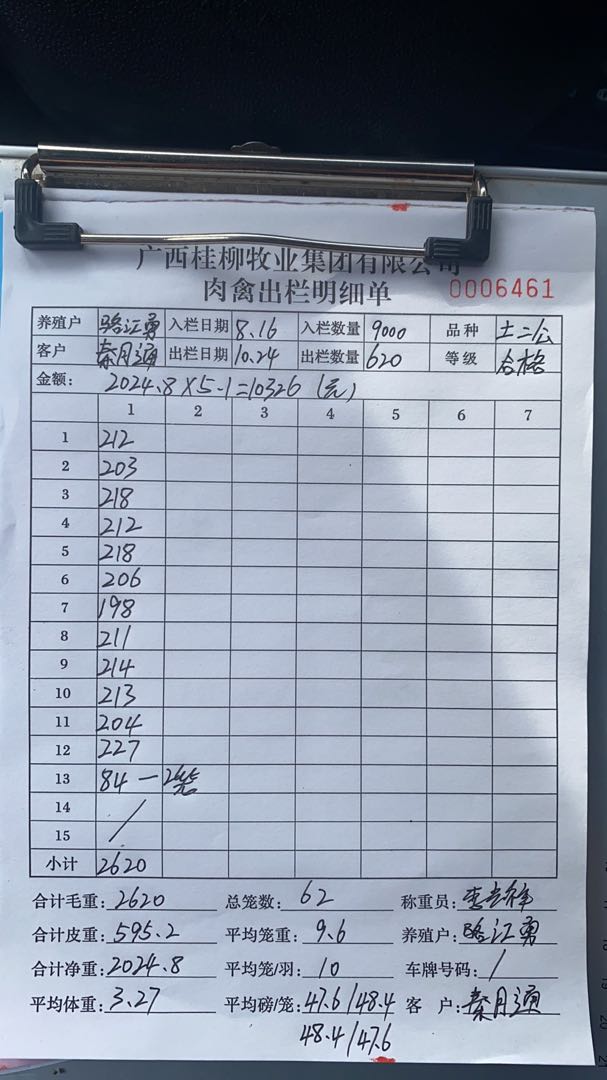 广西桂柳牧业集团有限公司
肉禽出栏明细单 0006461
养殖户 骆江勇 入栏日期 8.16 入栏数量 9000 品种 土二公
客户 秦月通 出栏日期 10.24 出栏数量 620 等级 合格
金额: 2024.8×5.1=10326(元)
1 2 3 4 5 6 7
1 212
2 203
3 218
4 212
5 218
6 206
7 198
8 211
9 214
10 213
11 204
12 227
13 84 — 2笼
14 /
15
小计 2620
合计毛重: 2620 总笼数: 62 称重员:
合计皮重: 595.2 平均笼重: 9.6 养殖户: 骆江勇
合计净重: 2024.8 平均笼/羽: 10 车牌号码: /
平均体重: 3.27 平均磅/笼: 47.6/48.4 客 户: 秦月通
48.4/47.6